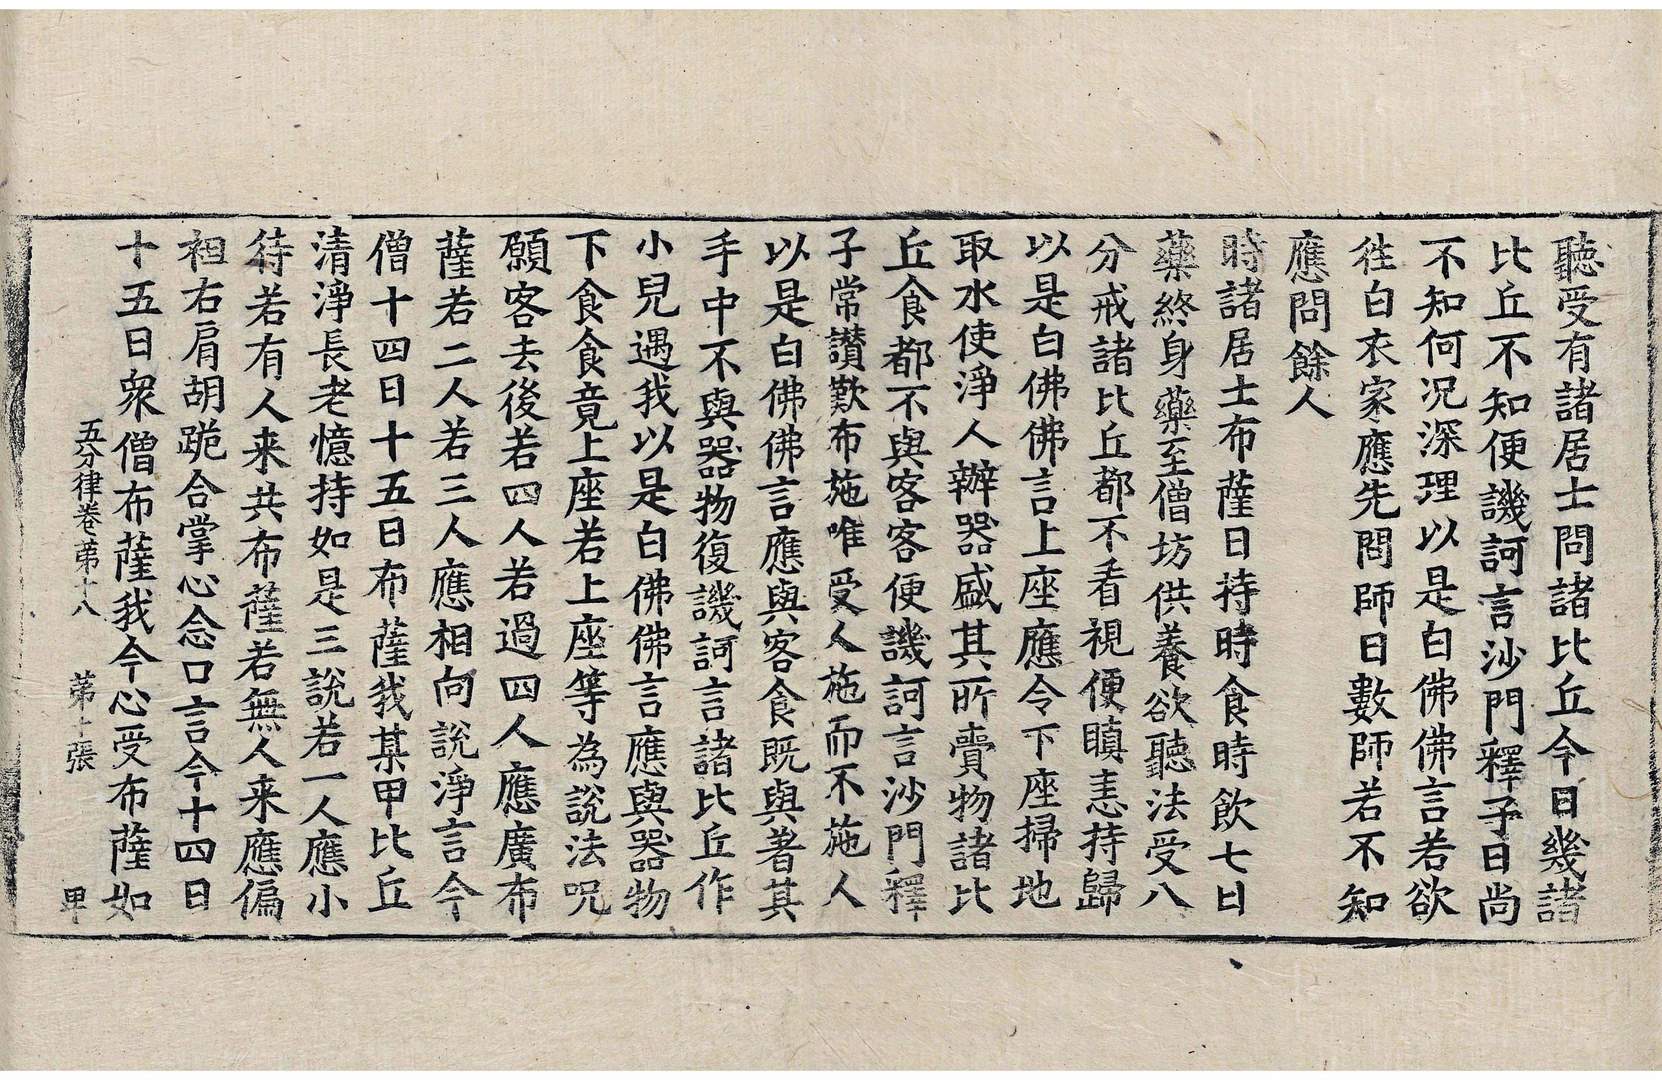 聽受有諸居士問諸比丘今日幾諸
比丘不知便譏訶言沙門釋子日尚
不知何況深理以是白佛佛言若欲
往白衣家應先問師日數師若不知
應問餘人
時諸居士布薩日持時食時飲七日
藥終身藥至僧坊供養欲聽法受八
分戒諸比丘都不看視便瞋恚持歸
以是白佛佛言上座應令下座掃地
取水使淨人辦器盛其所賷物諸比
丘食都不與客客便譏訶言沙門釋
子常讃歎布施唯受人施而不施人
以是白佛佛言應與客食既與著其
手中不與器物復譏訶言諸比丘作
小兒遇我以是白佛佛言應與器物
下食食竟上座若上座等為說法呪
願客去後若四人若過四人應廣布
薩若二人若三人應相向說淨言今
僧十四日十五日布薩我某甲比丘
清淨長老憶持如是三說若一人應小
待若有人来共布薩若無人来應偏
袒右肩胡跪合掌心念口言今十四日
十五日衆僧布薩我今心受布薩如
五分律卷苐十八 苐十張 甲